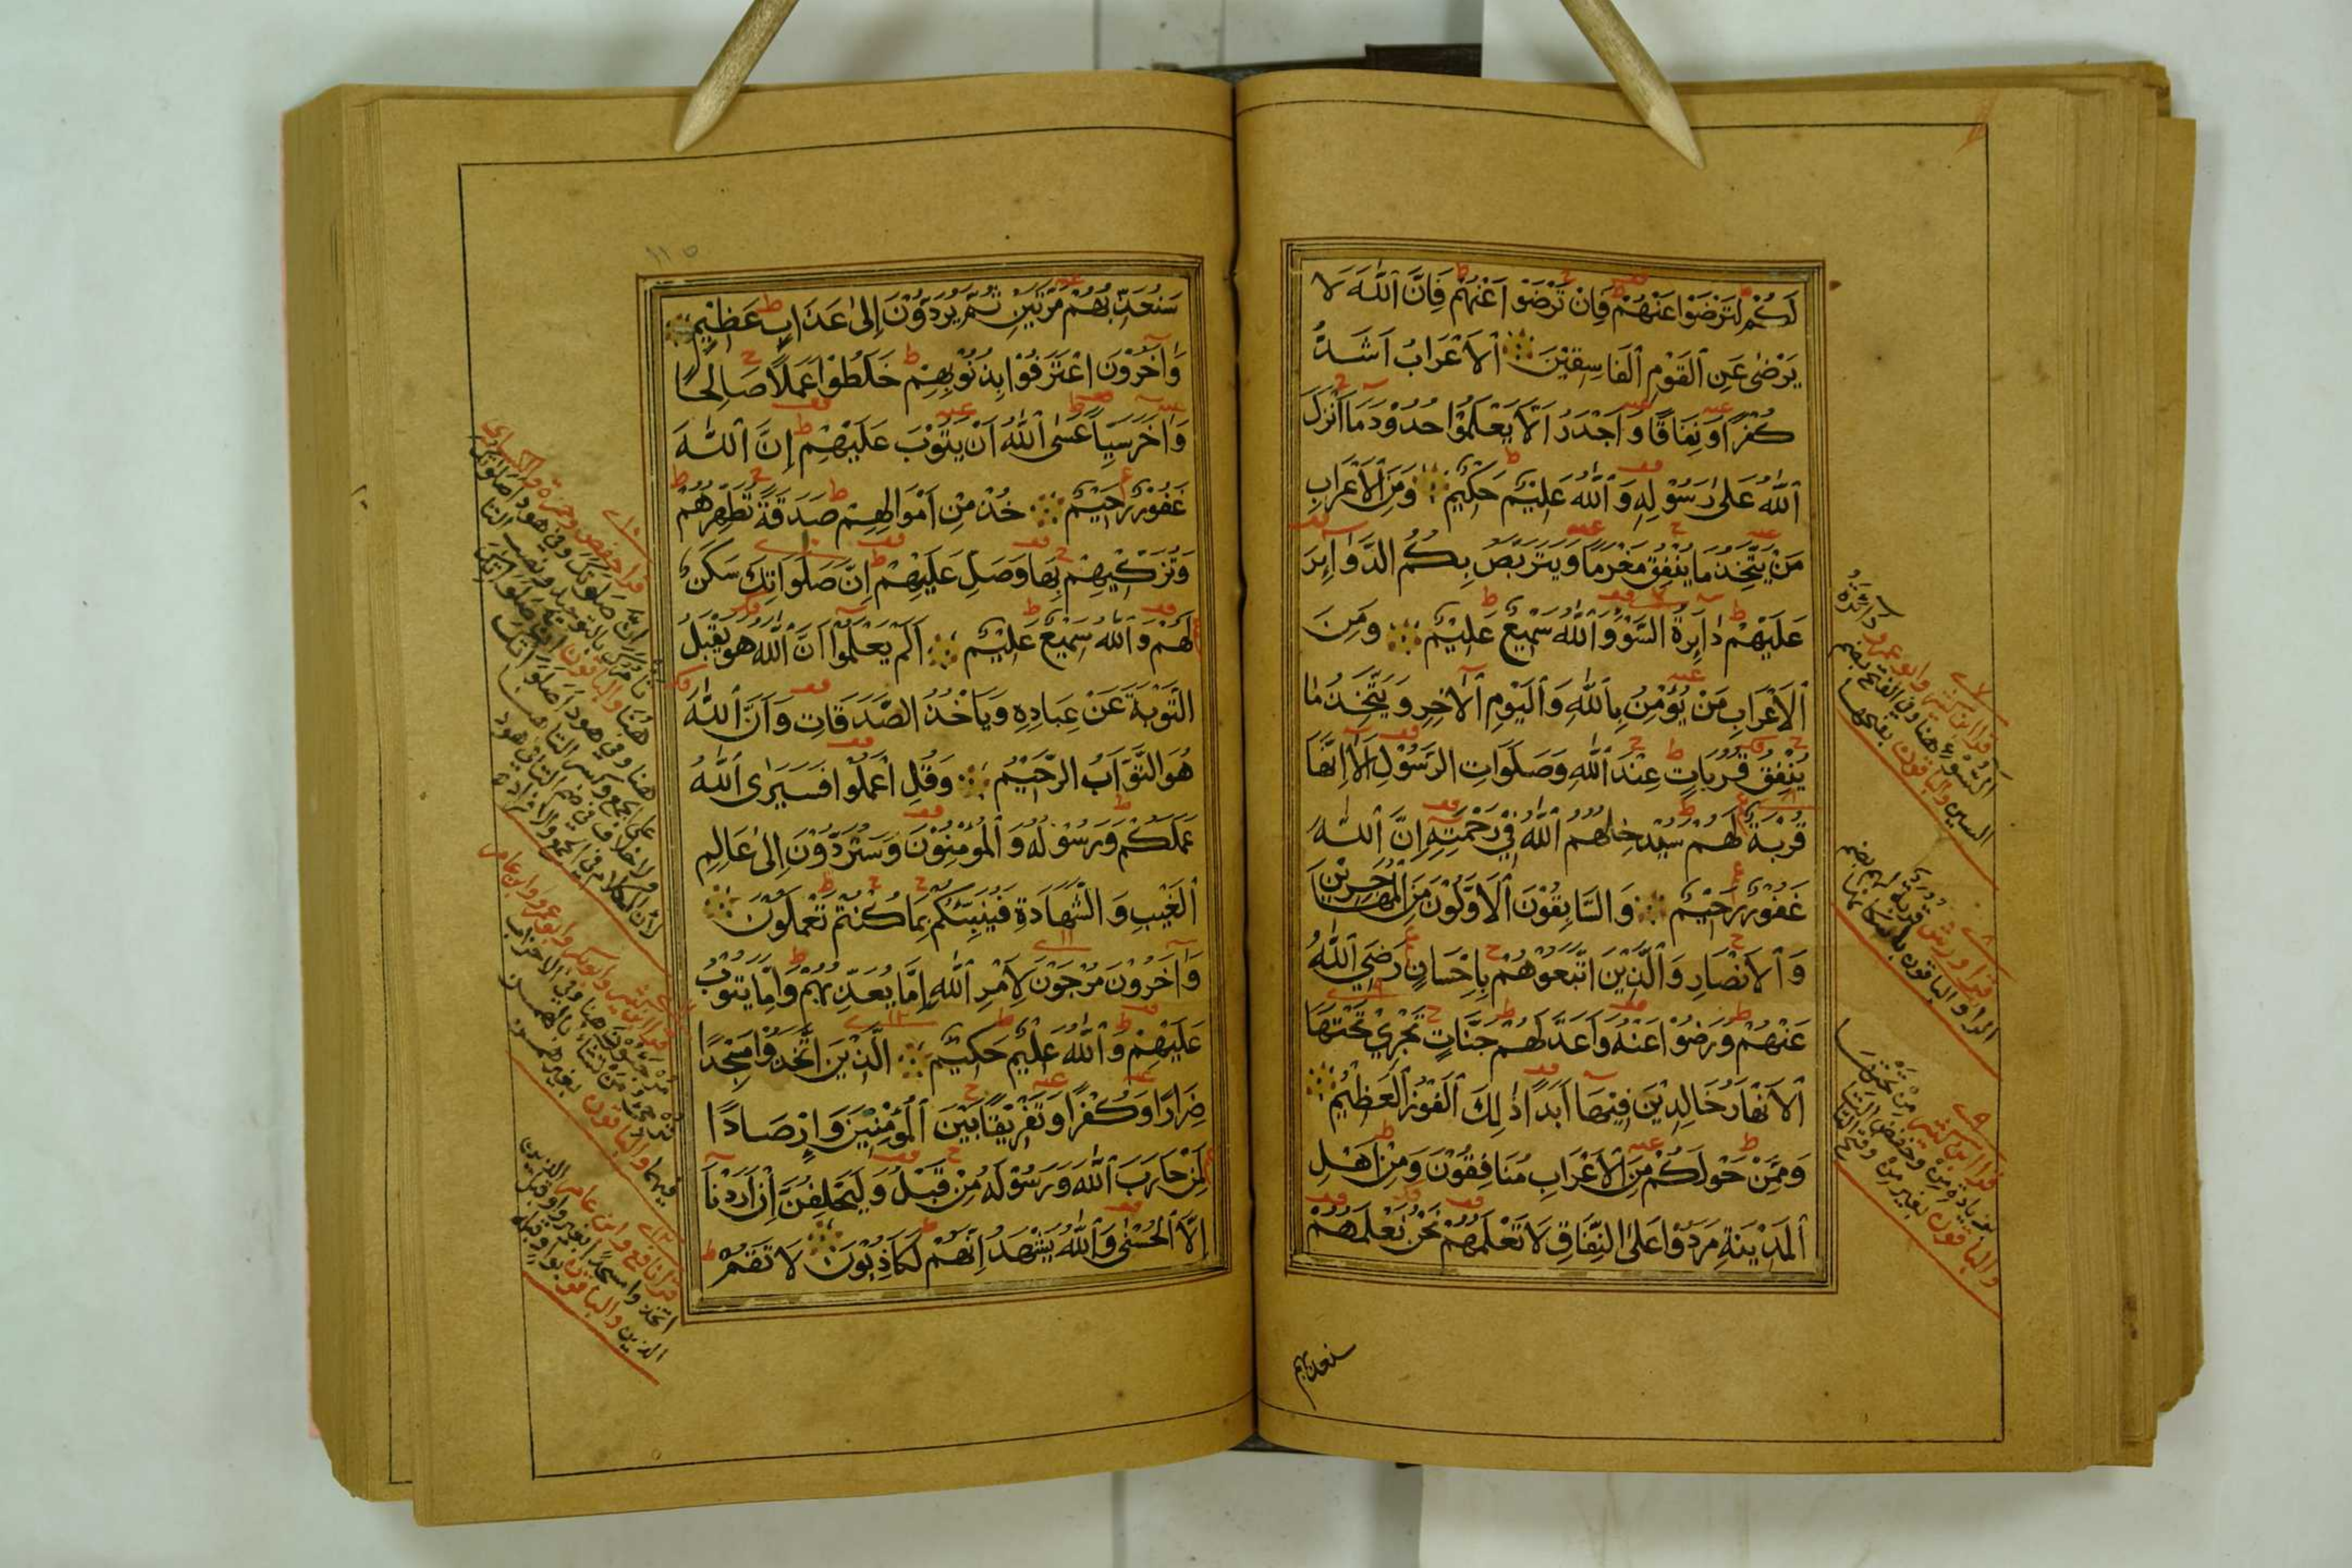 لَكُمْ لِتَرْضَوْا عَنْهُمْ فَاِنْ تَرْضَوْا عَنْهُمْ فَاِنَّ اللّٰهَ لَا
يَرْضٰى عَنِ الْقَوْمِ الْفَاسِقِيْنَ الْاَعْرَابُ اَشَدُّ
كُفْرًا وَنِفَاقًا وَاَجْدَرُ اَلَّا يَعْلَمُوْا حُدُوْدَ مَا اَنْزَلَ
اللّٰهُ عَلٰى رَسُوْلِهِ وَاللّٰهُ عَلِيْمٌ حَكِيْمٌ وَمِنَ الْاَعْرَابِ
مَنْ يَتَّخِذُ مَا يُنْفِقُ مَغْرَمًا وَيَتَرَبَّصُ بِكُمُ الدَّوَايِرَ
عَلَيْهِمْ دَايِرَةُ السَّوْءِ وَاللّٰهُ سَمِيْعٌ عَلِيْمٌ وَمِنَ
الْاَعْرَابِ مَنْ يُؤْمِنُ بِاللّٰهِ وَالْيَوْمِ الْاٰخِرِ وَيَتَّخِذُ مَا
يُنْفِقُ قُرُبَاتٍ عِنْدَ اللّٰهِ وَصَلَوَاتِ الرَّسُوْلِ اَلَا اِنَّهَا
قُرْبَةٌ لَهُمْ سَيُدْخِلُهُمُ اللّٰهُ فِيْ رَحْمَتِهِ اِنَّ اللّٰهَ
غَفُوْرٌ رَحِيْمٌ وَالسَّابِقُوْنَ الْاَوَّلُوْنَ مِنَ الْمُهَاجِرِيْنَ
وَالْاَنْصَارِ وَالَّذِيْنَ اتَّبَعُوْهُمْ بِاِحْسَانٍ رَضِيَ اللّٰهُ
عَنْهُمْ وَرَضُوْا عَنْهُ وَاَعَدَّ لَهُمْ جَنَّاتٍ تَجْرِيْ تَحْتَهَا
الْاَنْهَارُ خَالِدِيْنَ فِيْهَا اَبَدًا ذٰلِكَ الْفَوْزُ الْعَظِيْمُ
وَمِمَّنْ حَوْلَكُمْ مِنَ الْاَعْرَابِ مُنَافِقُوْنَ وَمِنْ اَهْلِ
الْمَدِيْنَةِ مَرَدُوْا عَلَى النِّفَاقِ لَا تَعْلَمُهُمْ نَحْنُ نَعْلَمُهُمْ
سنعذبهم
قرأ ابن كثير وابو عمرو دائرة
السوء هنا وفي الفتح بضم
السين والباقون بفتحها
قرأ ورش قربة لهم بضم
الراء والباقون باسكانها
قرأ ابن كثير من تحتها
بزيادة من وخفض التاء
والباقون بغير من وفتح التاء
١١٥
سَنُعَذِّبُهُمْ مَرَّتَيْنِ ثُمَّ يُرَدُّوْنَ اِلٰى عَذَابٍ عَظِيْمٍ
وَاٰخَرُوْنَ اعْتَرَفُوْا بِذُنُوْبِهِمْ خَلَطُوْا عَمَلًا صَالِحًا
وَاٰخَرَ سَيِّئًا عَسَى اللّٰهُ اَنْ يَتُوْبَ عَلَيْهِمْ اِنَّ اللّٰهَ
غَفُوْرٌ رَحِيْمٌ خُذْ مِنْ اَمْوَالِهِمْ صَدَقَةً تُطَهِّرُهُمْ
وَتُزَكِّيْهِمْ بِهَا وَصَلِّ عَلَيْهِمْ اِنَّ صَلَوَاتِكَ سَكَنٌ
لَهُمْ وَاللّٰهُ سَمِيْعٌ عَلِيْمٌ اَلَمْ يَعْلَمُوْا اَنَّ اللّٰهَ هُوَ يَقْبَلُ
التَّوْبَةَ عَنْ عِبَادِهِ وَيَاْخُذُ الصَّدَقَاتِ وَاَنَّ اللّٰهَ
هُوَ التَّوَّابُ الرَّحِيْمُ وَقُلِ اعْمَلُوْا فَسَيَرَى اللّٰهُ
عَمَلَكُمْ وَرَسُوْلُهُ وَالْمُؤْمِنُوْنَ وَسَتُرَدُّوْنَ اِلٰى عَالِمِ
الْغَيْبِ وَالشَّهَادَةِ فَيُنَبِّئُكُمْ بِمَا كُنْتُمْ تَعْمَلُوْنَ
وَاٰخَرُوْنَ مُرْجَوْنَ لِاَمْرِ اللّٰهِ اِمَّا يُعَذِّبُهُمْ وَاِمَّا يَتُوْبُ
عَلَيْهِمْ وَاللّٰهُ عَلِيْمٌ حَكِيْمٌ الَّذِيْنَ اتَّخَذُوْا مَسْجِدًا
ضِرَارًا وَكُفْرًا وَتَفْرِيْقًا بَيْنَ الْمُؤْمِنِيْنَ وَاِرْصَادًا
لِمَنْ حَارَبَ اللّٰهَ وَرَسُوْلَهُ مِنْ قَبْلُ وَلَيَحْلِفُنَّ اِنْ اَرَدْنَا
اِلَّا الْحُسْنٰى وَاللّٰهُ يَشْهَدُ اِنَّهُمْ لَكَاذِبُوْنَ لَا تَقُمْ
قرأ نافع وابن عامر الذين
اتخذوا مسجدا بغير واو قبل
الذين والباقون بواو قبله